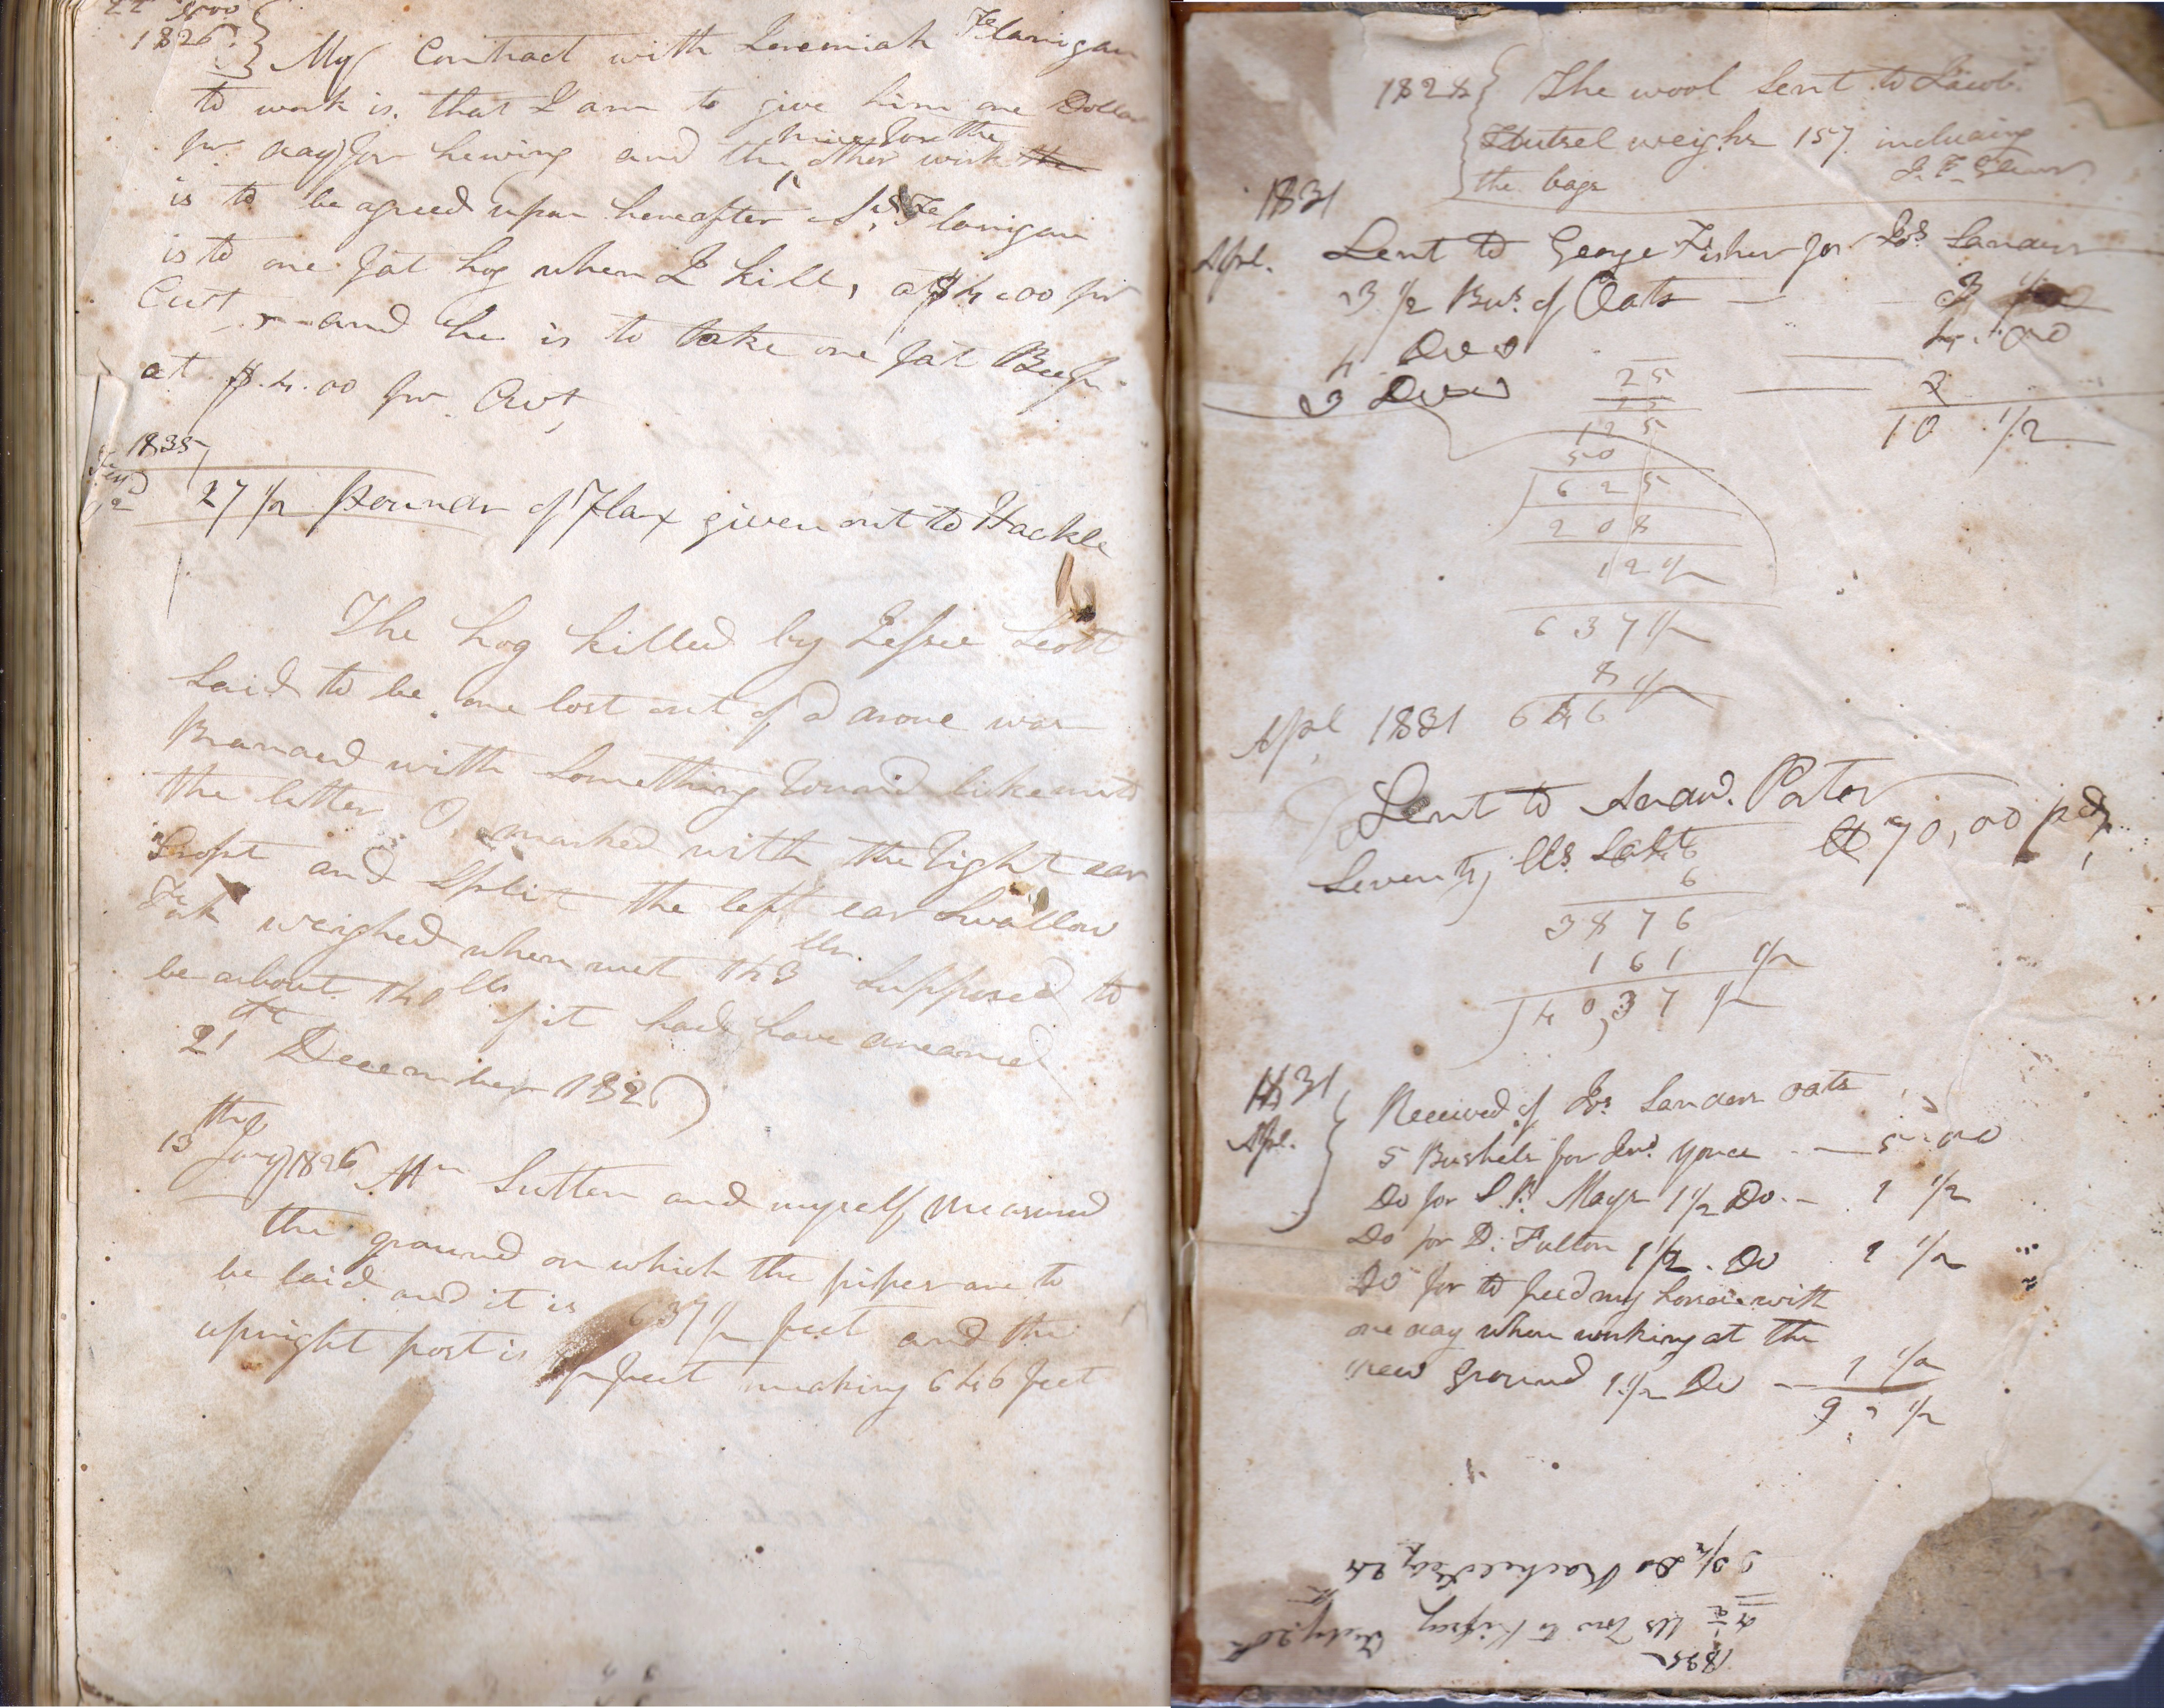 22 Nov
1826 } My Contract with Jeremiah Flanigan
to work is. that I am to give him one Dollar
pr day for hewing and the other work the
price for the
is to be agreed upon hereafter Sd. Flanigan
is to one fat hog when I kill, at $4.00 pr
Cwt, and he is to take one fat Beef
at $.4.00 pr. Cwt,
1835
27 1/2 Pounds of Flax given out to Hackle
The hog killed by Jessee Scott
Said to be one lost out of a drove was
Branded with Something Round like unto
the letter O marked with the right ear
Cropt and Split the left ear Swallow
Fork weighed when met 143 lbs. Supposed to
be about 140 lbs if it had have
21st December 1826
13th Jany 1826 Mr Sutton and myself measured
the ground on which the pipes are to
be laid and it is 637 1/2 feet and the
upright post is feet making 646 feet
1828 { The wool Sent to Jacob
Hutsel weighs 157 including
the bags
1831
Apl. Lent to George Fisher for Jos Sanders
3 1/2 Bus. of Oats — 3 1/2
4 Do 4.00
3 Do 3
10 1/2
25
25
125
50
625
208
12 1/2
637 1/2
8 1/2
646
Apl 1831
Lent to Andw. Porter
Seventy lbs Salt 70,00 pd
6
3876
161 1/2
40,37 1/2
1831
Apl. } Received of Jos Sanders oats
5 Bushels for Jno. Yonce — 5.00
Do for S. P. Mays 1 1/2 Do. — 1 1/2
Do for D. Fulton 1 1/2. Do 1 1/2
Do for to feed my horses with
one day when working at the
new ground 1 1/2 Do — 1 1/2
9 1/2
1835
lbs Tow to Kipsey July 20th
Do Rachel 24